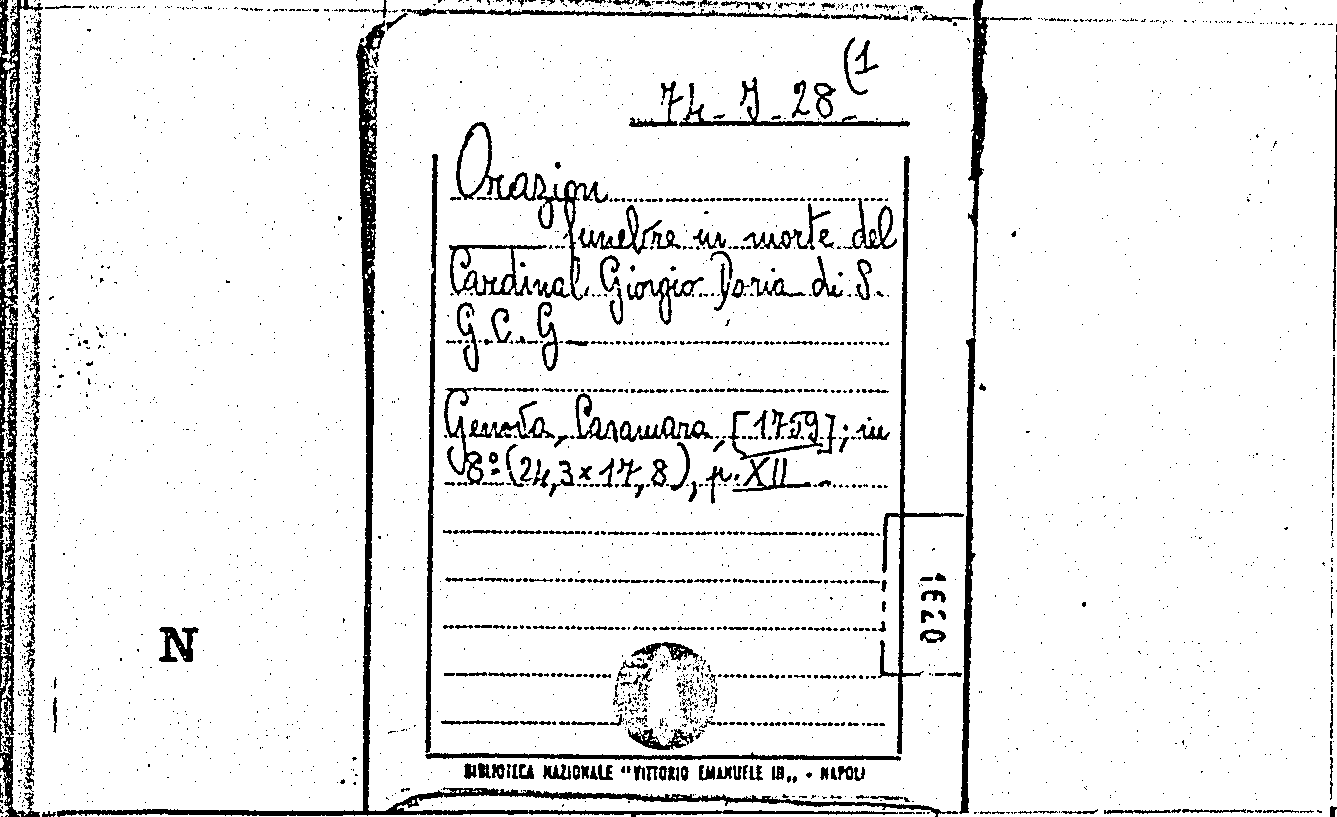 74-J-28 (1
Orazion
funebre in morte del
Cardinal Giorgio Doria di S.
G.C.G
Genova, Casamara, [1759]; in
8º (24,3×17,8), p. XII
1620
N
BIBLIOTECA NAZIONALE "VITTORIO EMANUELE III„ - NAPOLI